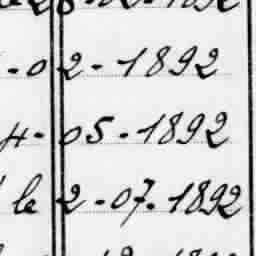 -02-1892
4-05-1892
le 2-07-1892